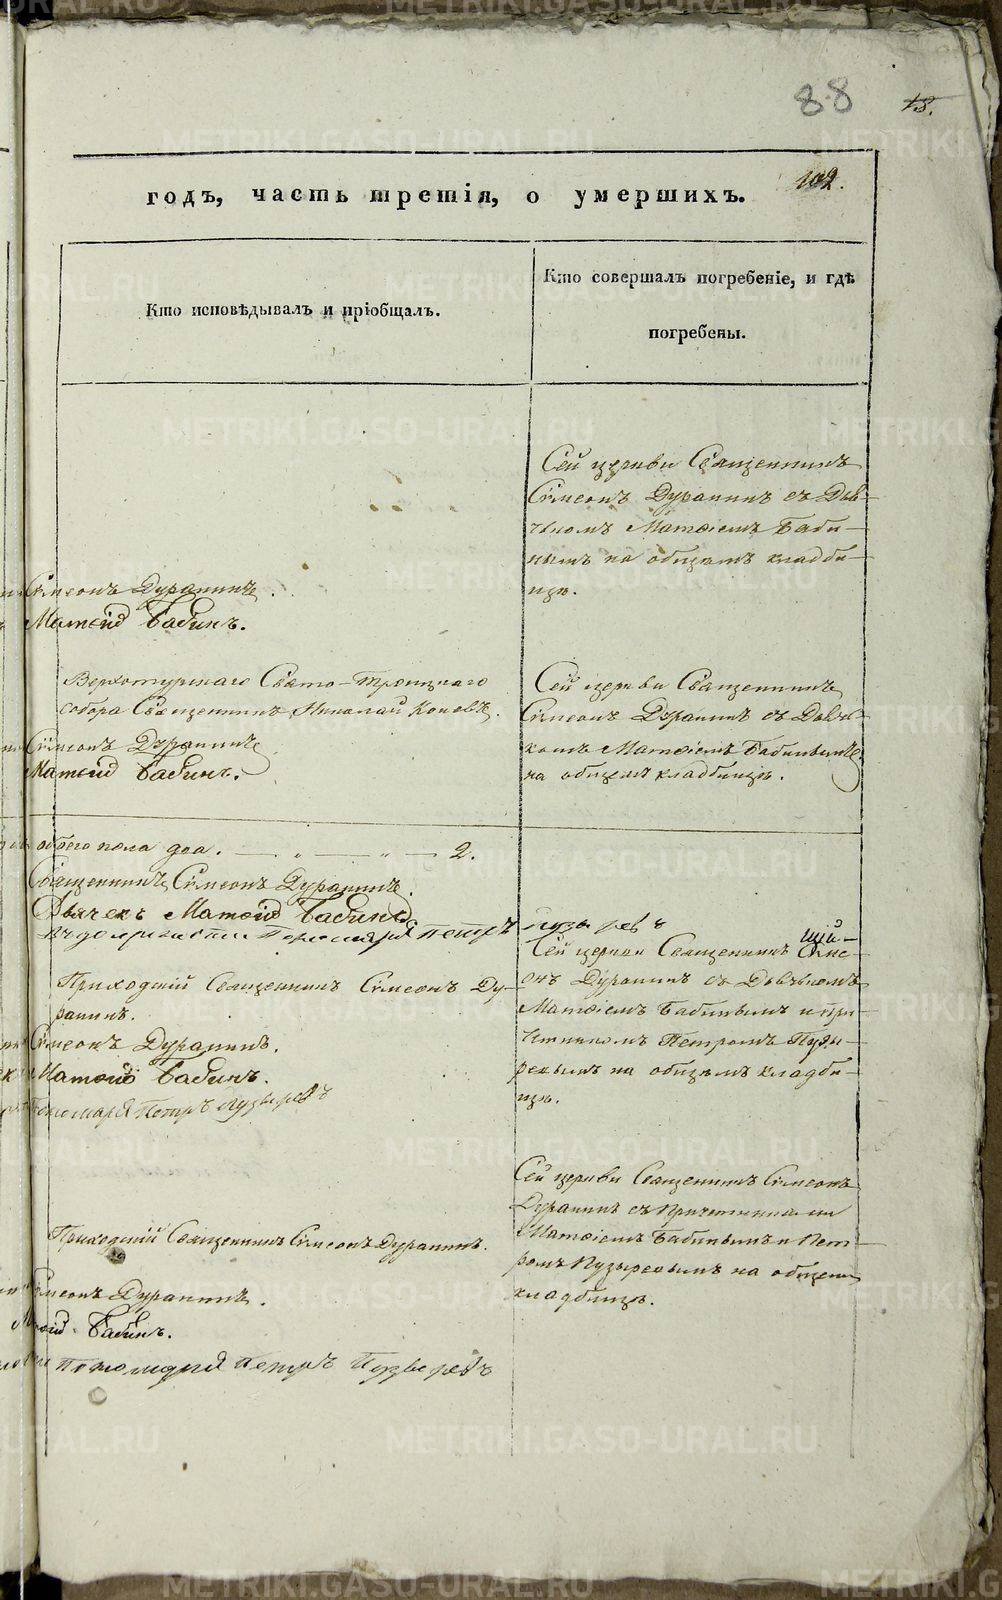 88
18.
102.
годъ, часть третія, о умершихъ.
Кто исповѣдывалъ и пріобщалъ.
Кто совершалъ погребеніе, и гдѣ
погребены.
Сей церкви Священникъ
Симеонъ Дурапинъ съ Дья-
чкомъ Матѳіемъ Баби-
нымъ на общемъ кладби-
щѣ.
Симеонъ Дурапинъ.
Матѳій Бабинъ.
Верхотурскаго Свято-Троицкаго
собора Священникъ Николай Коневъ.
Симеонъ Дурапинъ
Матѳій Бабинъ.
Сей церкви Священникъ
Симеонъ Дурапинъ съ Дьяч-
комъ Матѳіемъ Бабинымъ
на общемъ кладбищѣ.
обоего пола два. — „ — „ — 2.
Священникъ Симеонъ Дурапинъ.
Дьячекъ Матѳій Бабинъ
въ должности Пономаря Петръ Пузыревъ
Приходскій Священникъ Симеонъ Ду-
рапинъ.
Симеонъ Дурапинъ.
Матѳій Бабинъ.
Пономарь Петръ Пузыревъ
Сей церкви Священникъ Симе-
онъ Дурапинъ съ Дьячкомъ
Матѳіемъ Бабинымъ и При-
четникомъ Петромъ Пузы-
ревымъ на общемъ кладби-
щѣ.
Приходскій Священникъ Симеонъ Дурапинъ.
Симеонъ Дурапинъ.
Матѳій Бабинъ.
Пономаря Петръ Пузыревъ
Сей церкви Священникъ Симеонъ
Дурапинъ съ Причетниками
Матѳіемъ Бабинымъ и Пет-
ромъ Пузыревымъ на общемъ
кладбищѣ.
METRIKI.GASO-URAL.RU